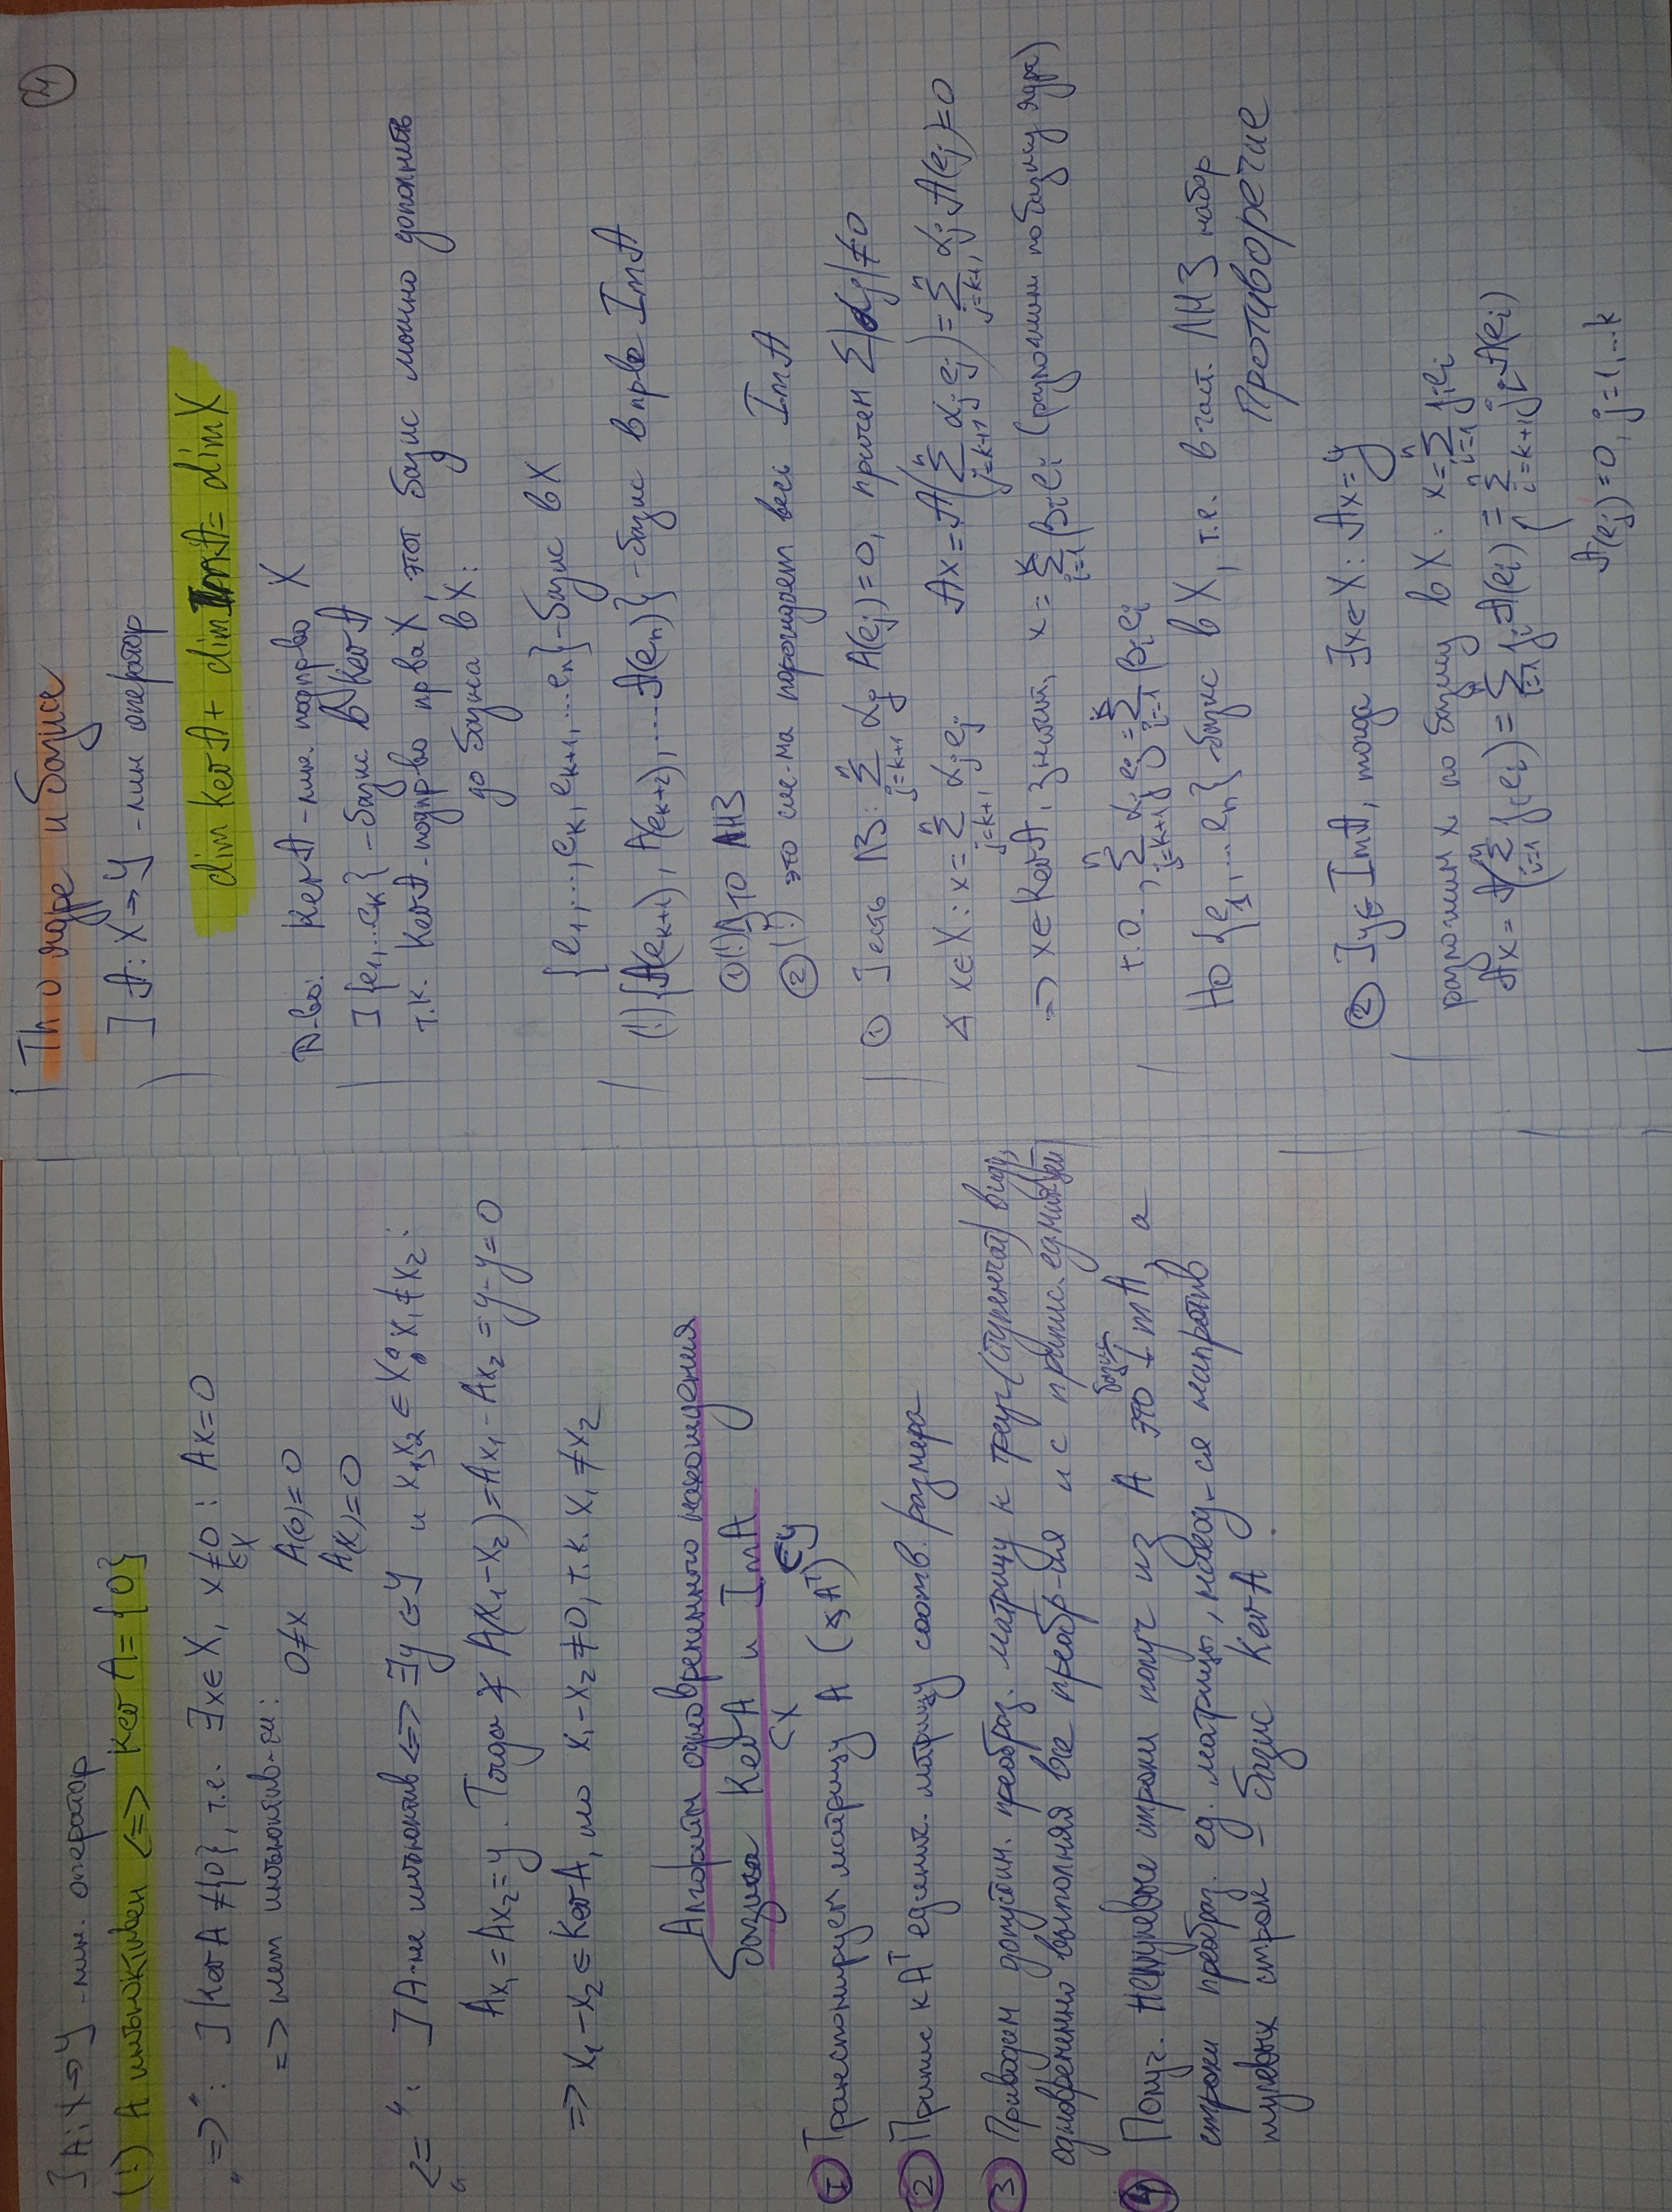 ] A: X → Y - лин. оператор
(!) A инъективен <=> Ker A = {0}
"=>": ] Ker A ≠ {0}, т.е. ∃x ∈ X, x ≠ 0 : Ax = 0
∈X
=> нет инъектив-ти: 0 ≠ x A(0) = 0
A(x) = 0
"<=": ] A - не инъектив <=> ∃y ∈ Y и x₁, x₂ ∈ X: x₁ ≠ x₂:
Ax₁ = Ax₂ = y. Тогда ∢ A(x₁ - x₂) = Ax₁ - Ax₂ = y - y = 0
=> x₁ - x₂ ∈ Ker A, но x₁ - x₂ ≠ 0, т.к. x₁ ≠ x₂
Алгоритм одновременного нахождения
базиса Ker A и Im A
⊂X ⊂Y
1 Транспонируем матрицу A (∢ Aᵀ)
2 Припис к Aᵀ единич. матрицу соотв. размера
3 Приводим допустим. преобраз. матрицу к треуг (ступенчат) виду,
одновременно выполняя все преобр-ия и с припис. единицей
4 Получ. ненулевые строки получ из A это базис Im A, а
строки преобраз. ед. матрицы, наход-ся напротив
нулевых строк - базис Ker A
4
Th о ядре и базисе
] A: X → Y - лин оператор
dim Ker A + dim Im A = dim X
Д-во: Ker A - лин. подпр-во X
] {e₁, ... eₖ} - базис в Ker A
т.к. Ker A - подпр-во пр-ва X, этот базис можно дополнить
до базиса в X:
{e₁, ..., eₖ, eₖ₊₁, ... eₙ} - базис в X
(!) {A(eₖ₊₁), A(eₖ₊₂), ... A(eₙ)} - базис в пр-ве Im A
① (!) ЛНЗ
② (!) это сис-ма порождает весь Im A
① ] есть ЛЗ: ∑ⁿⱼ₌ₖ₊₁ αⱼ A(eⱼ) = 0, причем ∑|αⱼ| ≠ 0
∢ x ∈ X : x = ∑ⁿⱼ₌ₖ₊₁ αⱼ eⱼ Ax = A(∑ⁿⱼ₌ₖ₊₁ αⱼ eⱼ) = ∑ⁿⱼ₌ₖ₊₁ αⱼ A(eⱼ) = 0
=> x ∈ Ker A, значит, x = ∑ᵏᵢ₌₁ βᵢ eᵢ (разложили по базису ядра)
т.о., ∑ⁿⱼ₌ₖ₊₁ αⱼ eⱼ = ∑ᵏᵢ₌₁ βᵢ eᵢ
Но {e₁, ... eₙ} - базис в X, т.е. в част. ЛНЗ набор
Противоречие
② ] y ∈ Im A, тогда ∃x ∈ X: Ax = y
разложим x по базису в X: x = ∑ⁿᵢ₌₁ jᵢ eᵢ
Ax = A(∑ⁿᵢ₌₁ jᵢ eᵢ) = ∑ⁿᵢ₌₁ jᵢ A(eᵢ) = ∑ⁿᵢ₌ₖ₊₁ jᵢ A(eᵢ)
A(eⱼ) = 0, j = 1, ... k